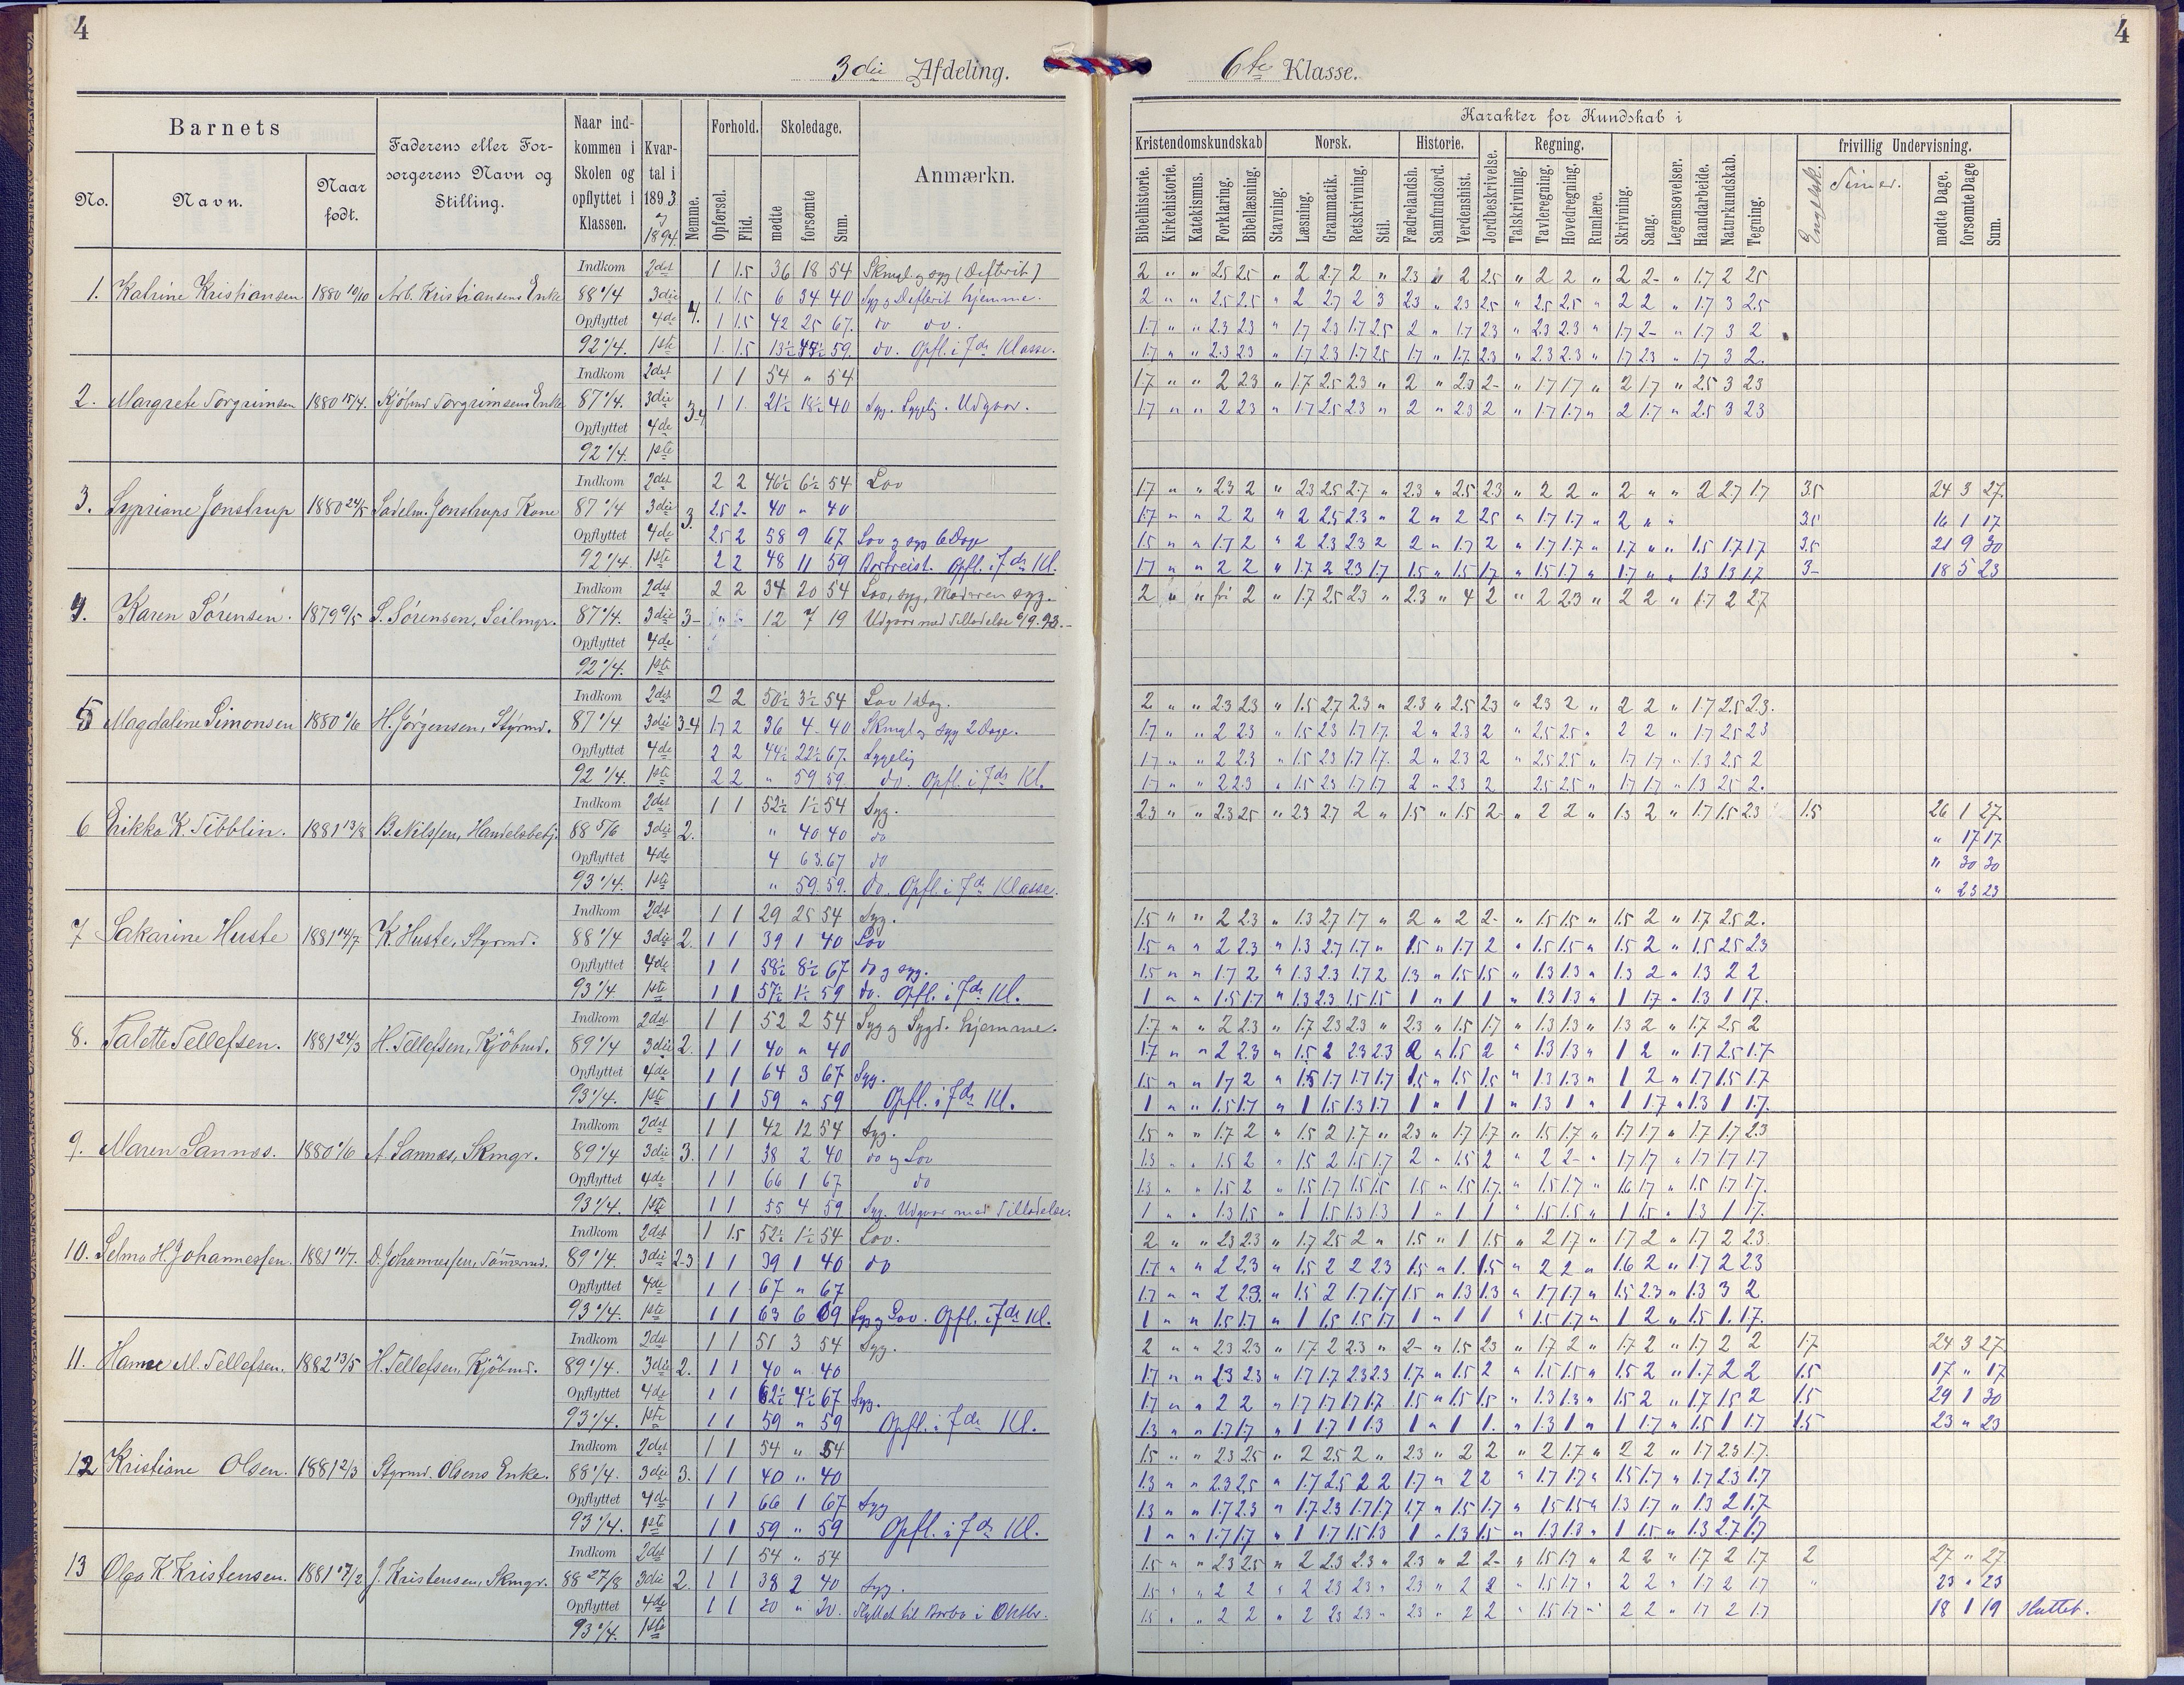 4
3die Afdeling.
Barnets
No.
Navn.
Naar født.
Faderens eller Forsørgerens Navn og Stilling.
Naar indkommen i Skolen og opflyttet i Klassen.
Kvartal i 1893 og 1894.
Nemme.
Forhold.
Opførsel.
Flid.
Skoledage.
mødte
forsømte
Sum.
Anmærkn.
1. Katrine Kristiansen 1880 10/10 Arb. Kristiansens Enke 4.
Indkom 2det 1 1.5 36 18 54 Skmgl. og syg (Defterit)
88 1/4 3die 1 1.5 6 34 40 Syg og Defterit hjemme.
Opflyttet 4de 1 1.5 42 25 67. do do.
92 1/4. 1ste 1 1.5 13½ 45½ 59. do. Opfl. i 7de Klasse.
2. Margrete Torgrimsen 1880 15/4. Kjöbmd Torgrimsens Enke 3-4
Indkom 2det 1 1 54 " 54
87 1/4. 3die 1 1 21½ 18½ 40 Syg. Sygelig. Udgaar.
Opflyttet 4de
92 1/4. 1ste
3. Sypriane Jonstrup 1880 24/5 Sadelm. Jonstrups Kone 3.
Indkom 2det 2 2 46½ 6½ 54 Lov
87 1/4 3die 2.5 2- 40 " 40
Opflyttet 4de 2.5 2 58 9 67 Lov og syg 6 Dage
92 1/4. 1ste 2 2 48 11 59 Bortreist. Opfl. i 7de Kl.
4. Karen Sørensen. 1879 9/5 S. Sørensen, Seilmgr. 3-
Indkom 2det 2 2 34 20 54 Lov, syg, Moderen syg.
87 1/4. 3die 12 7 19 Udgaar med Tilladelse 6/9. 93.-
Opflyttet 4de
92 1/4. 1ste
5 Magdaline Simonsen 1880 1/6 H. Jørgensen, Styrmd. 3-4
Indkom 2det 2 2 50½ 3½ 54 Lov 1 Dag.
87 1/4 3die 1.7 2 36 4 40 Skmgl. og syg 2 Dage.
Opflyttet 4de 2 2 44½ 22½ 67. Sygelig
92 1/4. 1ste 2 2 " 59 59. do. Opfl. i 7de Kl.
6 Erikka K. Tibblin. 1881 13/8 B. Nilssen, Handelsbetj. 2.
Indkom 2det 1 1 52½ 1½ 54 Syg.
88 5/6 3die " 40 40 do
Opflyttet 4de 4 63. 67 do
93 1/4. 1ste " 59. 59. do. Opfl. i 7de Klasse.
7 Sakarine Huste 1881 14/7 K. Huste, Styrmd. 2.
Indkom 2det 1 1 29 25 54 Syg.
88 1/4 3die 1 1 39 1 40 Lov
Opflyttet 4de 1 1 58½ 8½ 67 do og syg.
93 1/4 1ste 1 1 57½ 1½ 59 do. Opfl. i 7de Kl.
8. Talette Tellefsen. 1881 24/3 H. Tellefsen, Kjöbmd. 2.
Indkom 2det 1 1 52 2 54 Syg og Sygd. hjemme.
89 1/4 3die 1 1 40 " 40
Opflyttet 4de 1 1 64 3 67 Syg.
93 1/4. 1ste 1 1 59 " 59 Opfl. i 7de Kl.
9. Maren Sannæs. 1880 1/6 A. Sannæs, Skmgr. 3.
Indkom 2det 1 1 42 12 54 Syg.
89 1/4 3die 1 1 38 2 40 do og Lov
Opflyttet 4de 1 1 66 1 67 do
93 1/4. 1ste 1 1 55 4 59 Syg. Udgaar med Tilladelse.
10. Selma H. Johannessen. 1881 11/7. D. Johannessen, Tömmermd. 2-3
Indkom 2det 1 1.5 52½ 1½ 54 Lov.
89 1/4. 3die 1 1 39 1 40 do
Opflyttet 4de 1 1 67 " 67
93 1/4. 1ste 1 1 63 6 69 Syg og Lov. Opfl. i 7de Kl.
11. Hanne M. Tellefsen. 1882 13/5 H. Tellefsen, Kjöbmd. 2.
Indkom 2det 1 1 51 3 54 Syg.
89 1/4. 3die 1 1 40 " 40
Opflyttet 4de 1 1 62½ 4½ 67 Syg.
93 1/4. 1ste 1 1 59 " 59 Opfl. i 7de Kl.
12 Kristiane Olsen. 1881 2/3 Styrmd. Olsens Enke. 3.
Indkom 2det 1 1 54 " 54
88 1/4. 3die 1 1 40 " 40
Opflyttet 4de 1 1 66 1 67 Syg
93 1/4. 1ste 1 1 59 " 59 Opfl. i 7de Kl.
13 Olga K. Kristensen. 1881 17/2 J. Kristensen, Skmgr. 2.
Indkom 2det 1 1 54 " 54
88 27/8 3die 1 1 38 2 40 Syg.
Opflyttet 4de 1 1 20 " 20. Flyttet til Barbo i Oktbr.
93 1/4. 1ste
4
6te Klasse.
Karakter for Kundskab i
Kristendomskundskab
Norsk.
Historie.
Regning.
frivillig Undervisning.
Bibelhistorie.
Kirkehistorie.
Katekismus.
Forklaring.
Bibellæsning.
Stavning.
Læsning.
Grammatik.
Retskrivning.
Stil.
Fædrelandsh.
Samfundsord.
Verdenshist.
Jordbeskrivelse.
Talskrivning.
Tavleregning.
Hovedregning.
Rumlære.
Skrivning.
Sang.
Legemsøvelser.
Haandarbeide.
Naturkundskab.
Tegning.
Engelsk.
Timer.
mødte Dage.
forsømte Dage
Sum.
2 " " 2.5 2.5 " 2 2.7 2 " 2.3 " 2 2.5 " 2 2 " 2 2- " 1.7 2 2.5
2 " " 2.5 2.5 " 2 2.7 2 3 2.3 " 2.3 2.5 " 2.5 2.5 " 2 2 " 1.7 3 2.5
1.7 " " 2.3 2.3 " 1.7 2.3 1.7 2.5 2 " 1.7 2.3 " 2.3 2.3 " 1.7 2- " 1.7 3 2
1.7 " " 2.3 2.3 " 1.7 2.3 1.7 2.5 1.7 " 1.7 2.3 " 2.3 2.3 " 1.7 2.3 " 1.7 3 2.
1.7 " " 2 2.3 " 1.7 2.5 2.3 " 2 " 2.3 2- " 1.7 1.7 " 2 1.7 " 2.5 3 2.3
1.7 " " 2 2.3 " 1.7 2.5 2.3 " 2 " 2.3 2 " 1.7 1.7 " 2 1.7 " 2.5 3 2.3
1.7 " " 2.3 2 " 2.3 2.5 2.7 " 2.3 " 2.5 2.3 " 2 2 " 2 " " 2 2.7 1.7 3.5 24 3 27.
1.7 " " 2 2 " 2 2.5 2.3 " 2 " 2 2.5 " 1.7 1.7 " 2 " " 3.5 16 1 17
1.5 " " 1.7 2 " 2 2.3 2.3 2 2 " 1.7 2 " 1.7 1.7 " 1.7 " " 1.5 1.7 1.7 3.5 21 9 30
1.7 " " 2 2 " 1.7 2 2.3 1.7 1.5 " 1.5 1.7 " 1.5 1.7 " 1.7 " " 1.3 1.3 1.7 3- 18 5 23
2 " " fri 2 " 1.7 2.5 2.3 " 2.3 " 4 2 " 2 2.3 " 2 2 " 1.7 2 2.7
2 " " 2.3 2.3 " 1.5 2.7 2.3 " 2.3 " 2.5 2.3 " 2.3 2 " 2 2 " 1.7 2.5 2.3.
1.7 " " 2 2.3 " 1.5 2.3 1.7 1.7. 2 " 2.3 2 " 2.5 2.5 " 2 2 " 1.7 2.5 2.3
1.7 " " 2 2.3 " 1.5 2.3 1.7 1.7. 2 " 2.3 2 " 2.5 2.5 " 1.7 1.7 " 1.3 2.5 2
1.7 " " 2 2.3 " 1.5 2.3 1.7 1.7 2 " 2.3 2 " 2.5 2.5 " 1.7 1.7 " 1.3 2.5 2.
2.3 " " 2.3 2.5 " 2.3 2.7 2 " 1.5 " 1.5 2- " 2 2 " 1.3 2 " 1.7 1.5 2.3 1.5 26 1 27.
" 17 17
" 30 30
" 23 23
1.5 " " 2 2.3 " 1.3 2.7 1.7 " 2 " 2 2- " 1.5 1.5 " 1.5 2 " 1.7 2.5 2.
1.5 " " 2 2.3 " 1.3 2.7 1.7 " 1.5 " 1.7 2 " 1.5 1.5 " 1.5 2 " 1.5 2.5 2.3
1.5 " " 1.7 2 " 1.3 2.3 1.7 2 1.3 " 1.5 1.5 " 1.3 1.3 " 1.3 2 " 1.3 2 2
1 " " 1.5 1.7 " 1.3 2.3 1.5 1.5 1 " 1 1 " 1.3 1.3 " 1 1.7 " 1.3 1 1.7.
1.7 " " 2 2.3 " 1.7 2.3 2.3 " 2.3 " 1.5 1.7 " 1.3 1.3 " 1.3 2 " 1.7 2.5 2
1.7 " " 2 2.3 " 1.5 2 2.3 2.3 2 " 1.5 2 " 1.3 1.3 " 1 2 " 1.7 2.5 1.7
1.5 " " 1.7 2 " 1.5 1.7 1.7 1.7 1.5 " 1.5 1.5 " 1.3 1.3 " 1 2 " 1.7 1.5 1.7
1 " " 1.5 1.7 " 1 1.5 1.3 1.7 1 " 1 1 " 1.3 1 " 1 1.7 " 1.3 1 1.7.
1.5 " " 1.7 2 " 1.5 2 1.7 " 2.3 " 1.7 1.7 " 1.5 1.7 " 1.7 1.7 " 1.7 1.7 2.3
1.3 " " 1.5 2 " 1.5 2 1.5 1.7 2 " 1.5 2 " 2 2- " 1.7 1.7 " 1.7 1.7 1.7
1.3 " " 1.5 2 " 1.5 1.7 1.5 1.5 1.5 " 1.5 1.7. " 1.5 1.7 " 1.6 1.7 " 1.5 1.7 1.7.
1 " " 1.3 1.5 " 1 1.5 1.3 1.3 1 " 1 1 " 1.5 1.5 " 1 1.5 " 1.3 1 1.7.
2 " " 2.3 2.3 " 1.7 2.5 2 " 1.5 " 1 1.5 " 2 1.7 " 1.7 2 " 1.7 2 2.3.
1.7 " " 2 2.3 " 1.5 2 2 2.3 1.5 " 1. 1.5 " 2 2 " 1.6 2 " 1.7 2 2.3
1.7 " " 2 2.3. " 1.5 2 1.7 1.7 1.5 " 1.3 1.3 " 1.7 1.7 " 1.5 2.3 " 1.3 3 2
1 " " 1.5 1.7 " 1 1.5 1.5 1.7 1 " 1 1 " 1.5 1.7 " 1 2 " 1.5 1. 1.7.
2 " " 2.3 2.3 " 1.7 2 2.3 " 2- " 1.5 2.3 " 1.7 2 " 1.7 2 " 1.7 2 2 1.7 24 3 27.
1.7 " " 2.3 2.3 " 1.7 1.7 2.3 2.3 1.7 " 1.5 2 " 1.5 1.5 " 1.5 2 " 1.7 2 2 1.5 17 " 17
1.7 " " 2 2 " 1.7 1.7 1.7 1.7 1.5 " 1.5 1.5 " 1.3 1.3 " 1.5 2 " 1.7 1.5 2 1.5 29 1 30
1.3 " " 1.7 1.7 " 1 1.7 1 1.3 1 " 1 1. " 1.3 1 " 1 1.7 " 1.5 1 1.7 1.5 23 " 23
1.5 " " 2.3 2.5 " 2 2.5 2 " 2.3 " 2 2 " 2 1.7 " 2 2 " 1.7 2.3 1.7.
1.3 " " 2.3 2.5 " 1.7 2.5 2 2 1.7 " 2 2 " 1.7 1.7 " 1.5 1.7 " 1.7 2.3 1.7
1.3 " " 1.7 2.3 " 1.7 2.3 1.7 1.7 1.7 " 1.5 1.7 " 1.5 1.5 " 1.3 1.7 " 1.3 2 1.7
1 " " 1.7 1.7 " 1 1.7 1.5 1.3 1 " 1.3 1.5 " 1.3 1.3 " 1 1.5 " 1.3 2.7 1.7
1.5 " " 2.3 2.5 " 2 2.3 2.3 " 2.3 " 2 2- " 1.5 1.7 " 2 2 " 1.7 2 1.7 2 27 " 27.
1.5 " " 2 2 " 2 2.3 2.3 " 2.3 " 2 2 " 1.5 1.7 " 2 2 " 1.7 2 1.7 " 23 " 23
1.5 " " 2 2 " 2 2.3 2.3 " 2.3 " 2 2 " 1.5 1.7 " 2 2 " 1.7 2 1.7 18 1 19 Sluttet.